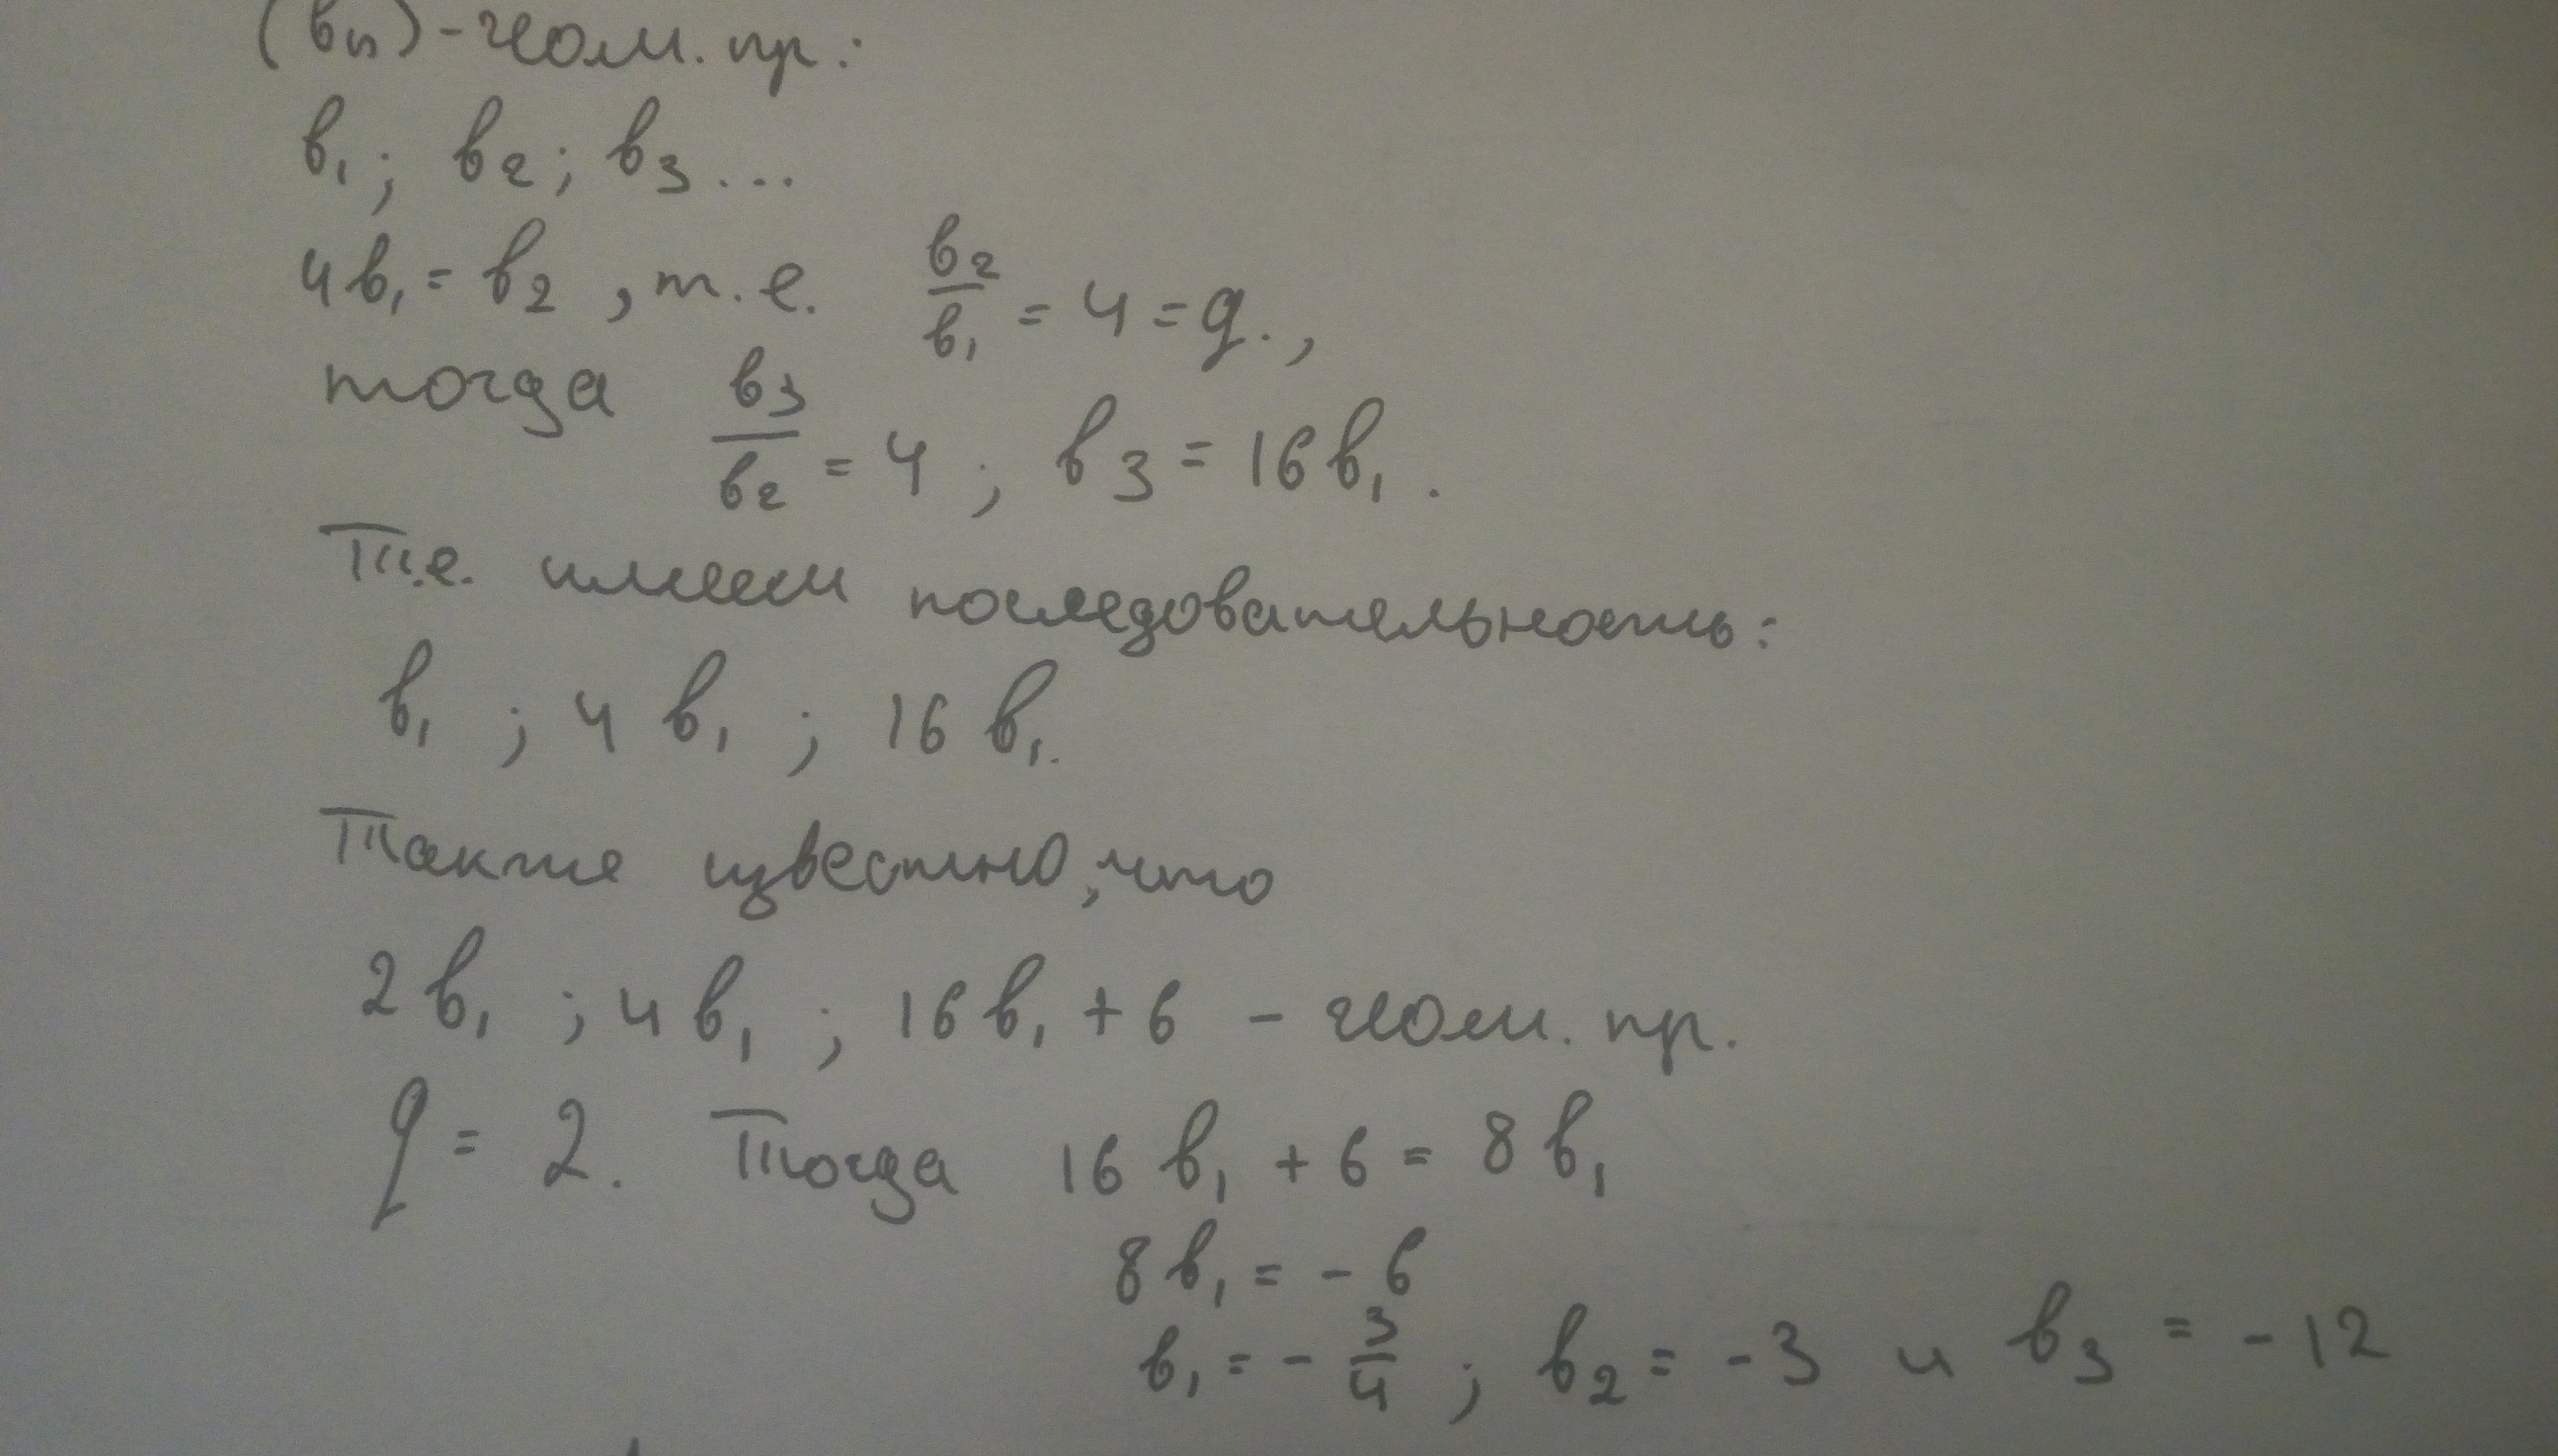 (bn) - геом. пр.:
b₁; b₂; b₃...
4b₁ = b₂, т.е. b₂/b₁ = 4 = q.,
тогда b₃/b₂ = 4; b₃ = 16b₁.
Т.е. имеем последовательность:
b₁; 4b₁; 16b₁.
Также известно, что
2b₁; 4b₁; 16b₁ + 6 - геом. пр.
q = 2. Тогда 16b₁ + 6 = 8b₁
8b₁ = -6
b₁ = -3/4; b₂ = -3 и b₃ = -12